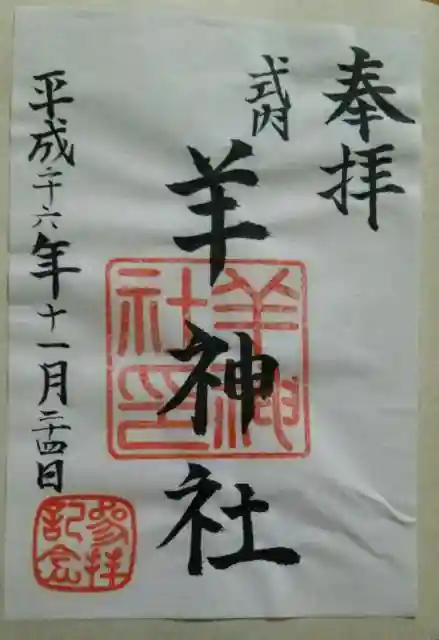 奉拝
式内
羊神社
平成二十六年十一月二十四日
羊神社印
参拝記念